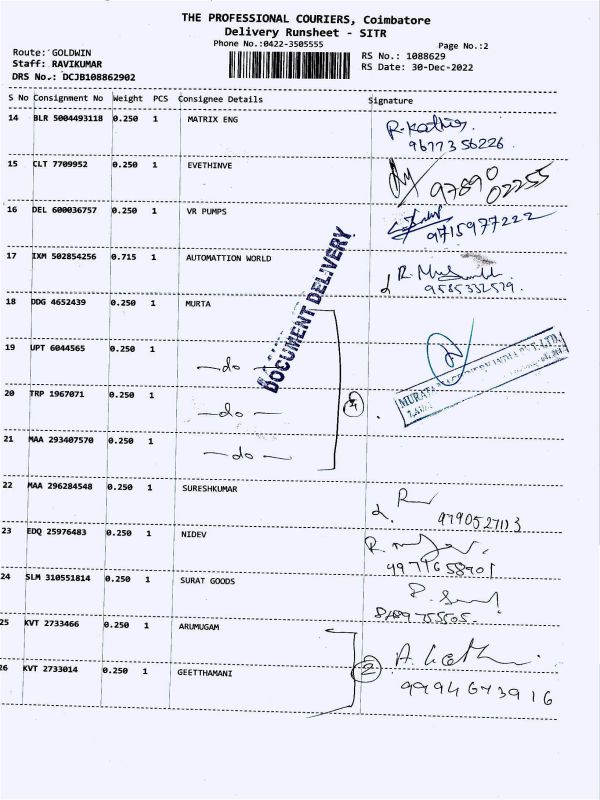 THE PROFESSIONAL COURIERS, Coimbatore
Delivery Runsheet - SITR
Phone No.:0422-3505555
Page No.:2
Route: GOLDWIN
Staff: RAVIKUMAR
DRS No.: DCJB108862902
RS No.: 1088629
RS Date: 30-Dec-2022
S No Consignment No Weight PCS Consignee Details Signature
14 BLR 5004493118 0.250 1 MATRIX ENG
9677356226
15 CLT 7709952 0.250 1 EVETHINVE
97890 02255
16 DEL 600036757 0.250 1 VR PUMPS
9715977222
17 IXM 502854256 0.715 1 AUTOMATTION WORLD
9585332529
DOCUMENT DELIVERY
18 DDG 4652439 0.250 1 MURTA
19 UPT 6044565 0.250 1 —do—
20 TRP 1967071 0.250 1 —do—
4
21 MAA 293407570 0.250 1 —do—
22 MAA 296284548 0.250 1 SURESHKUMAR
23 EDQ 25976483 0.250 1 NIDEV
24 SLM 310551814 0.250 1 SURAT GOODS
25 KVT 2733466 0.250 1 ARUMUGAM
2
26 KVT 2733014 0.250 1 GEETTHAMANI
9994673916